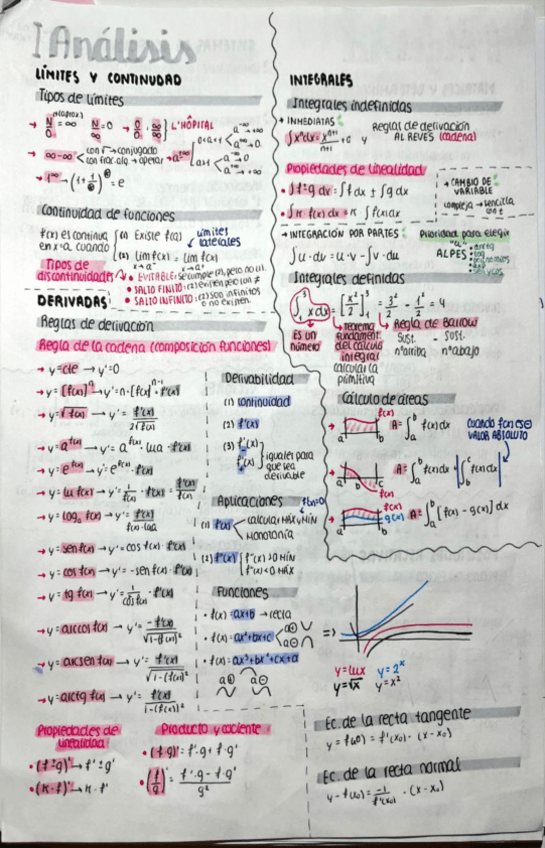 Análisis
LÍMITES Y CONTINUIDAD
Tipos de límites
N(nº aprox)/0 = ∞ N/∞ = 0 → 0/0, ∞/∞ | L'HÔPITAL
→ ∞-∞ con √ → conjugado
con frac. alg → operar
→ 1^∞ → (1+1/∞)^∞ = e
Continuidad de funciones
f(x) es continua en x=a cuando
(1) Existe f(a)
límites laterales
(2) lím f(x) = lím f(x)
x→a⁻ x→a⁺
Tipos de discontinuidades
• EVITABLE: se cumple (2), pero no (1).
• SALTO FINITO: (2) existen pero son ≠
• SALTO INFINITO: (2) son infinitos o no existen.
DERIVADAS
Reglas de derivación
Regla de la cadena (composición funciones)
→ y=cte → y'=0
→ y=[f(x)]ⁿ → y'=n·[f(x)]ⁿ⁻¹·f'(x)
→ y=√f(x) → y'= f'(x)/
→ y=a^f(x) → y'=a^f(x)·lna·f'(x)
→ y=e^f(x) → y'=e^f(x)·f'(x)
→ y=ln f(x) → y'=1/f(x)·f'(x)=f'(x)/f(x)
→ y=logₐ f(x) → y'=f'(x)/f(x)·lna
→ y=sen f(x) → y'=cos f(x)·f'(x)
→ y=cos f(x) → y'=-sen f(x)·f'(x)
→ y=tg f(x) → y'=1/cos f(x)·f'(x)
→ y=arccos f(x) → y'=-f'(x)/√1-(f(x))²
→ y=arcsen f(x) → y'=f'(x)/√1-(f(x))²
→ y=arctg f(x) → y'=f'(x)/1-(f(x))²
Propiedades de linealidad
• (f±g)' → f'±g'
• (k·f)' → k·f'
Producto y cociente
• (f·g)'=f'·g+f·g'
• (f/g)'=f'·g-f·g'/g²
Derivabilidad
(1) continuidad
(2) f'(x)
(3) f'(x) f'(x) iguales para que sea derivable
Aplicaciones
f'(x)=0
(1) f'(x) calcular MÁX y MÍN
MONOTONÍA
(2) f''(x) f''(x)>0 MÍN
f''(x)<0 MÁX
Funciones
• f(x)=ax+b → recta
• f(x)=ax²+bx+c a⊕ a⊖
• f(x)=ax³+bx²+cx+d
a⊕ a⊖
INTEGRALES
Integrales indefinidas
→ INMEDIATAS
∫xⁿdx=xⁿ⁺¹/n+1+c y Reglas de derivación AL REVÉS (cadena)
Propiedades de linealidad
• ∫f±g dx=∫f dx±∫g dx
• ∫k·f(x)dx=k·∫f(x)dx
→ CAMBIO DE VARIABLE
compleja → sencilla
con t
→ INTEGRACIÓN POR PARTES:
Prioridad para elegir "u"
∫u·dv=u·v-∫v·du
ALPES
Integrales definidas
∫₁³ x dx=[x²/2]₁³=3²/2-1²/2=4
ES UN número
Teorema fundament. del cálculo integral
calcular la primitiva
Regla de Barrow
Sust. nº arriba - Sust. nº abajo
Cálculo de áreas
f(x)
a b
A=∫ₐᵇ f(x)dx
cuando f(x) es ⊖ VALOR ABSOLUTO
a b c
f(x)
A=∫ₐᵇ f(x)dx |∫_b^c f(x)dx|
f(x)
g(x)
a b
A=∫ₐᵇ[f(x)-g(x)]dx
=>
y=lnx y=2ˣ
y=√x y=x²
Ec. de la recta tangente
y-f(x₀)=f'(x₀)·(x-x₀)
Ec. de la recta normal
y-f(x₀)=-1/f'(x₀)·(x-x₀)